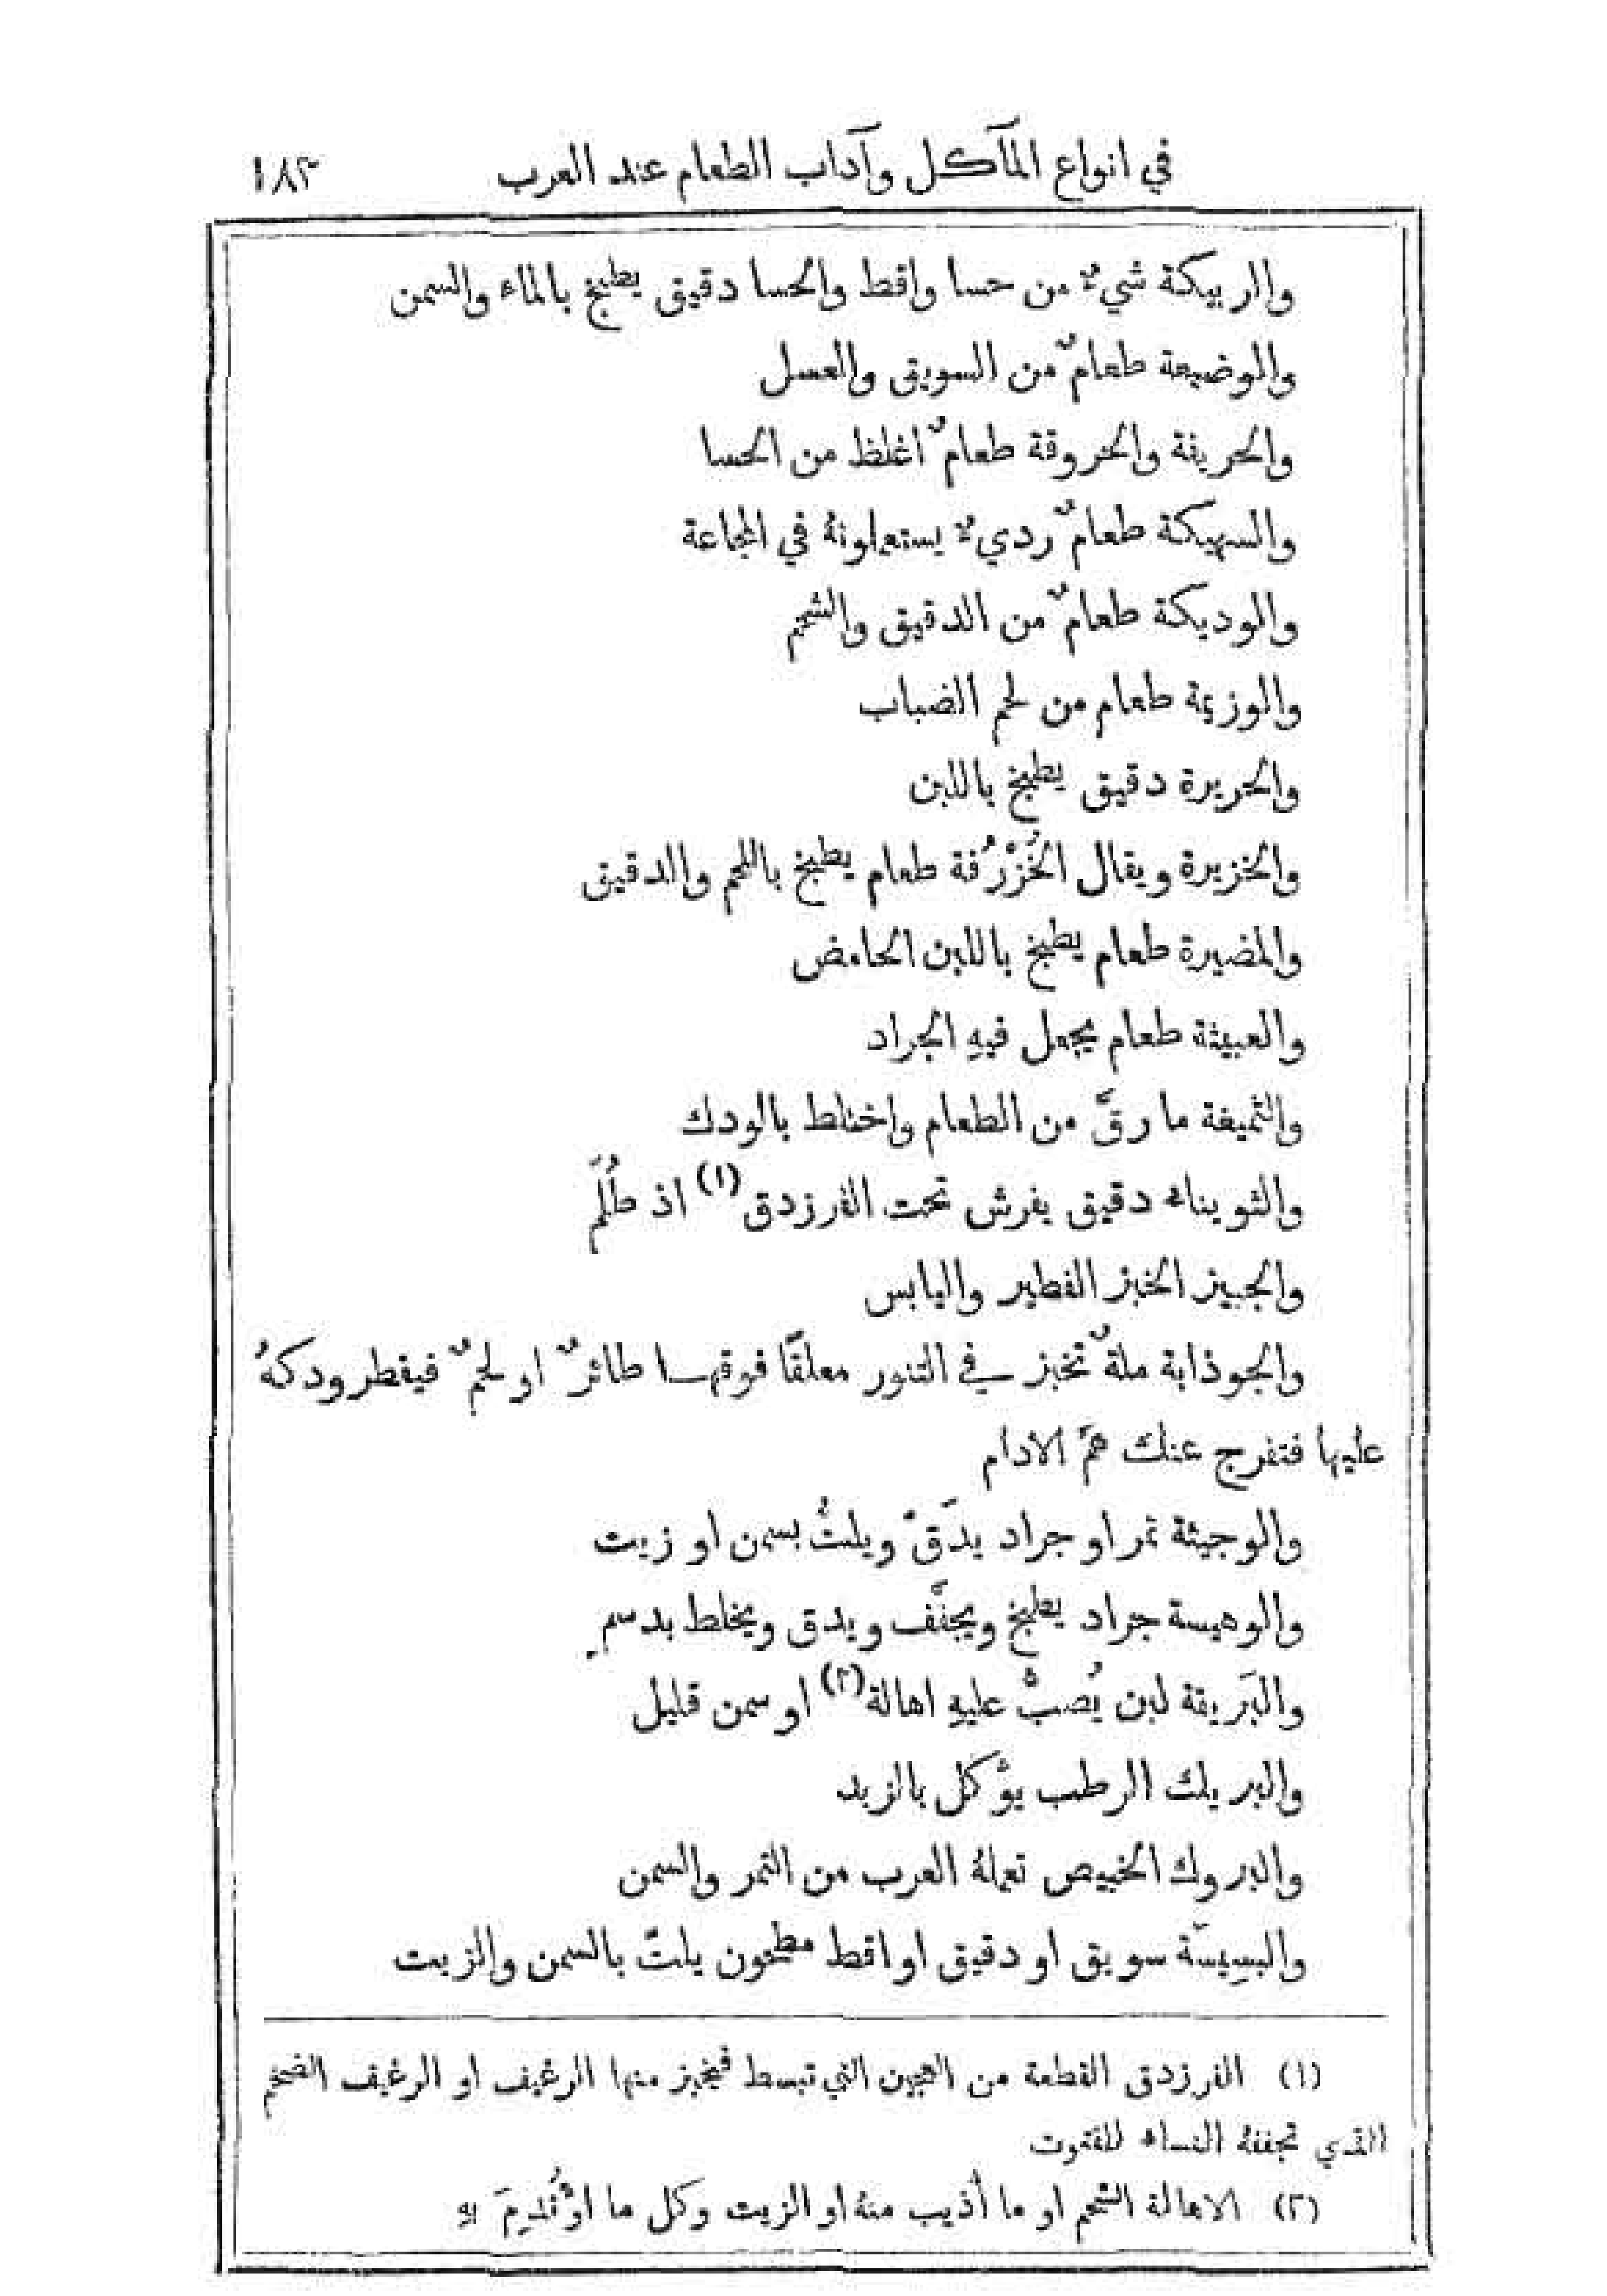 في انواع المآكل وآداب الطعام عند العرب ١٨٣
والربيكة شيءٌ من حسا واقط والحسا دقيق يطبخ بالماء والسمن
والوضيعة طعامٌ من السويق والعسل
والحريقة والحروقة طعامٌ اغلظ من الحسا
والسهيكة طعامٌ رديءٌ يستعملونهُ في المجاعة
والوديكة طعامٌ من الدقيق والشحم
والوزيمة طعام من لحم الضباب
والحريرة دقيق يطبخ باللبن
والخزيرة ويقال الخُزْرُفة طعام يطبخ باللحم والدقيق
والمضيرة طعام يطبخ باللبن الحامض
والعبيثة طعام يجعل فيهِ الجراد
والثميغة ما رقَّ من الطعام واختلط بالودك
والثويناء دقيق يفرش تحت الفرزدق (١) اذ طُلِّم
والجبيز الخبز الفطير واليابس
والجوذابة ملةٌ تخبز في التنور معلقًا فوقها طائرٌ او لحمٌ فيقطر ودكهُ
عليها فتفرج عنك همَّ الادام
والوجيئة تمر او جراد يدَقّ ويلتُّ بسمن او زيت
والوهيسة جراد يطبخ ويجفَّف ويدق ويخلط بدسمٍ
والبَريقة لبن يُصبُّ عليهِ اهالة (٢) او سمن قليل
والبريك الرطب يؤكل بالزبد
والبروك الخبيص تعملهُ العرب من التمر والسمن
والبسيسة سويق او دقيق او اقط مطحون يلتّ بالسمن والزيت
(١) الفرزدق القطعة من العجين التي تبسط فيخبز منها الرغيف او الرغيف الضخم
الذي تجففهُ النساء للفتوت
(٢) الاهالة الشحم او ما أُذيب منهُ او الزيت وكل ما اؤْتُدِمَ بهِ